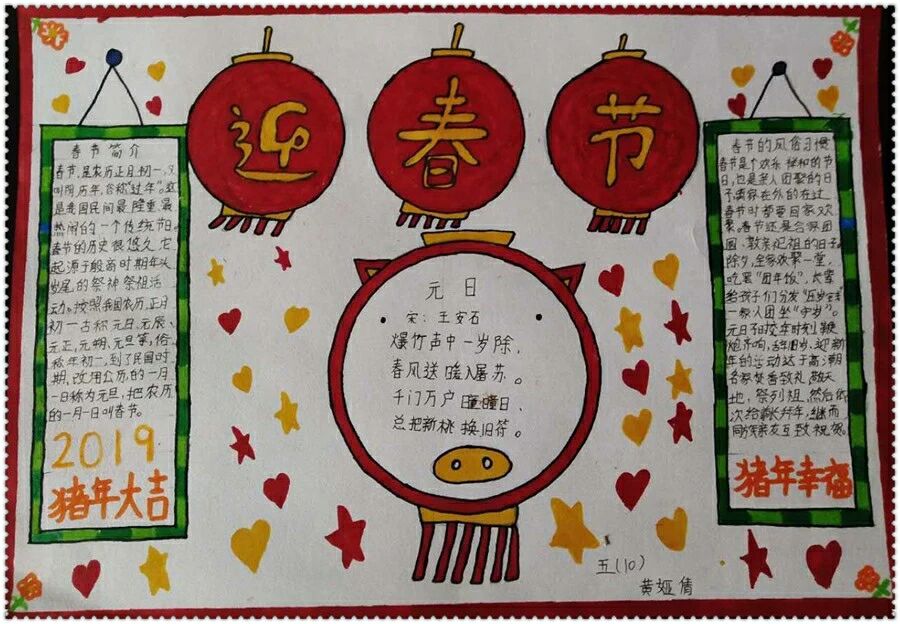 迎 春 节
春节简介
春节,是农历正月初一,又
叫阴历年,俗称"过年"。这
是我国民间最隆重最
热闹的一个传统节日。
春节的历史很悠久,它
起源于殷商时期年头
岁尾的祭神祭祖活
动。按照我国农历,正月
初一古称元日、元辰、
元正、元朔、元旦等,俗
称年初一,到了民国时
期,改用公历的一月
一日称为元旦,把农历
的一月一日叫春节。
2019
猪年大吉
元日
宋:王安石
爆竹声中一岁除,
春风送暖入屠苏。
千门万户曈曈日、
总把新桃换旧符。
五(10)
黄娅倩
春节的风俗习惯
春节是个欢乐祥和的节
日,也是亲人团聚的日
子,离家在外的在过
春节时都要回家欢
聚。春节还是合家团
圆、敦亲祀祖的日子。
除夕,全家欢聚一堂,
吃罢"团年饭",长辈
给孩子们分发"压岁钱"
一家人团坐"守岁"。
元日子时交年时刻,鞭
炮齐响,辞旧岁、迎新
年的活动达于高潮
各家焚香致礼,敬天
地,祭列祖,然后依
次给尊长拜年,继而
同族亲友互致祝贺。
猪年幸福